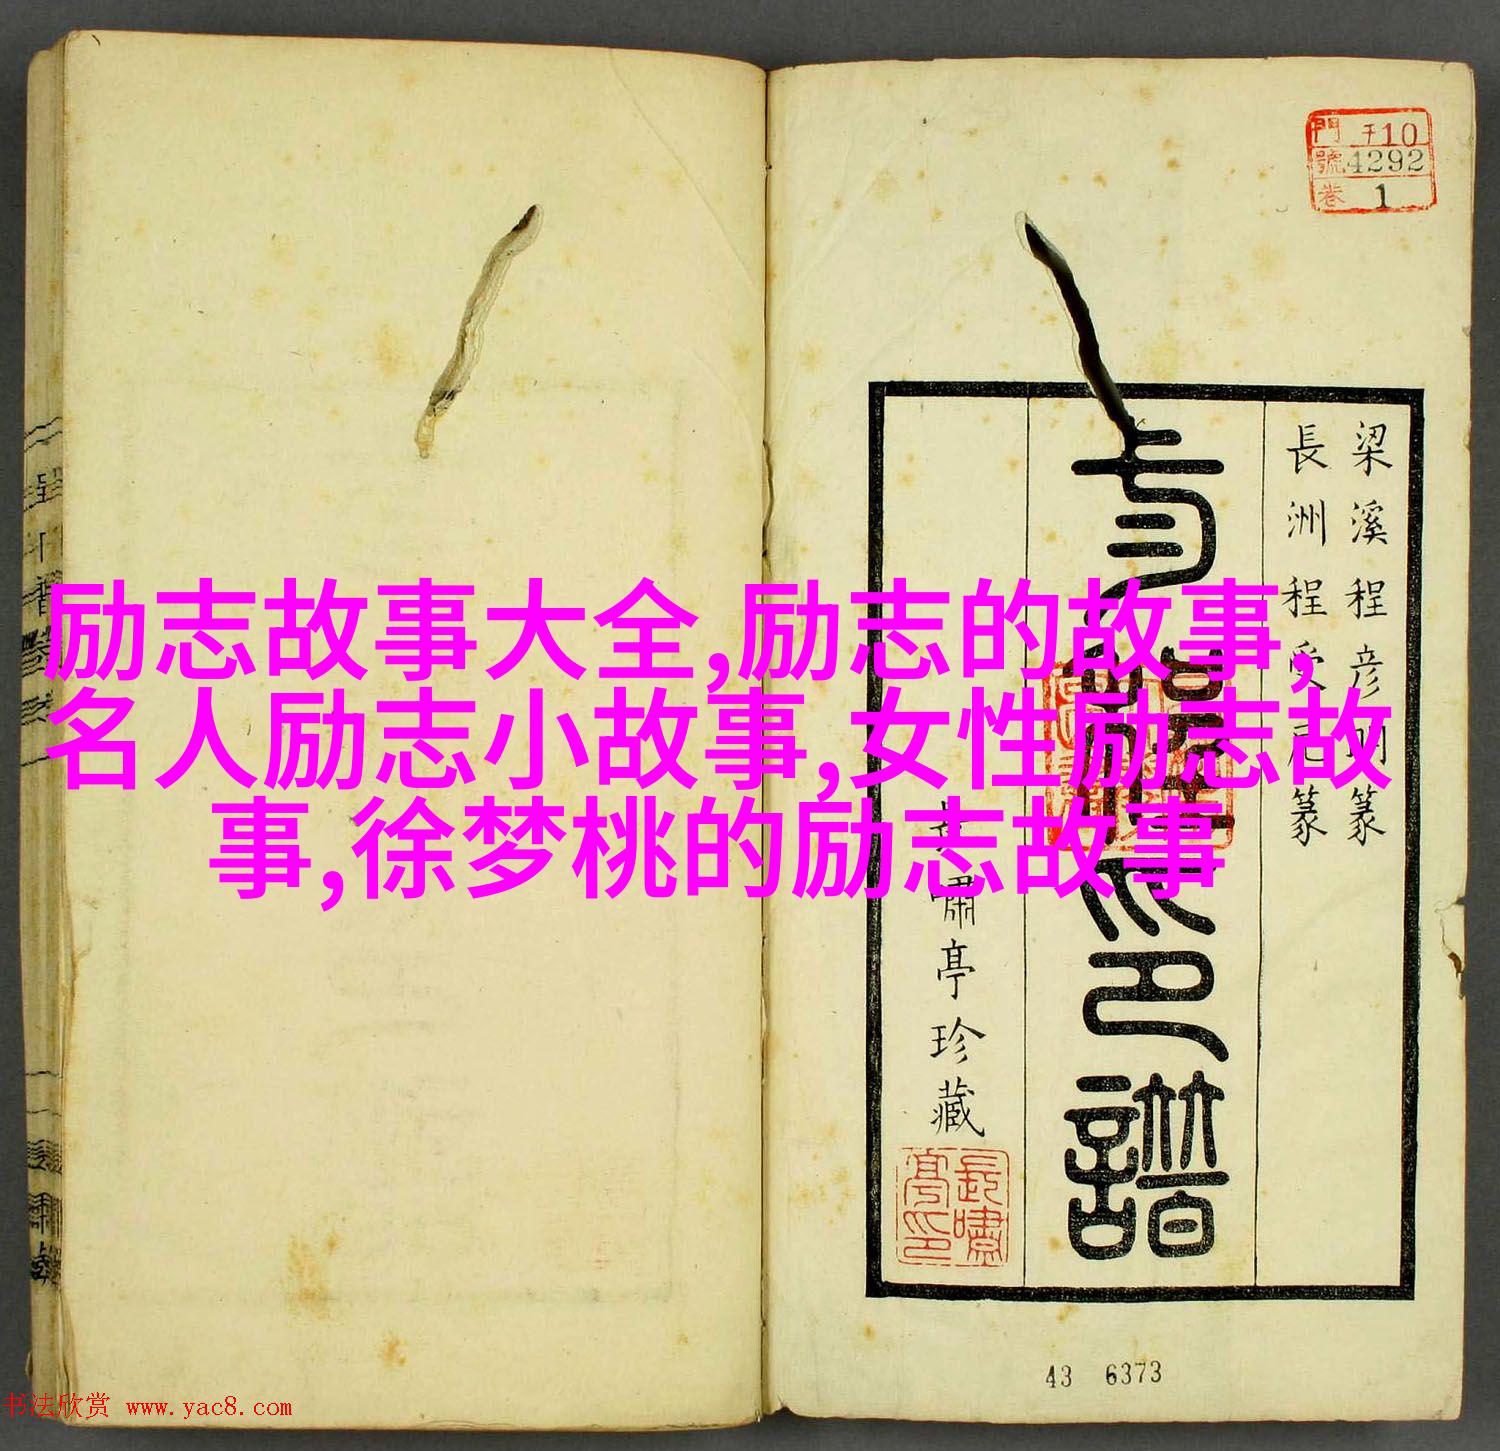 門 于10
號 4292
卷 1
梁溪程彦明篆
長洲程受尼篆
印譜
嘯亭珍藏
長嘯亭印
励志故事大全,励志的故事,
名人励志小故事,女性励志故
事,徐梦桃的励志故事
43 6373
书法欣赏 www.yac8.com